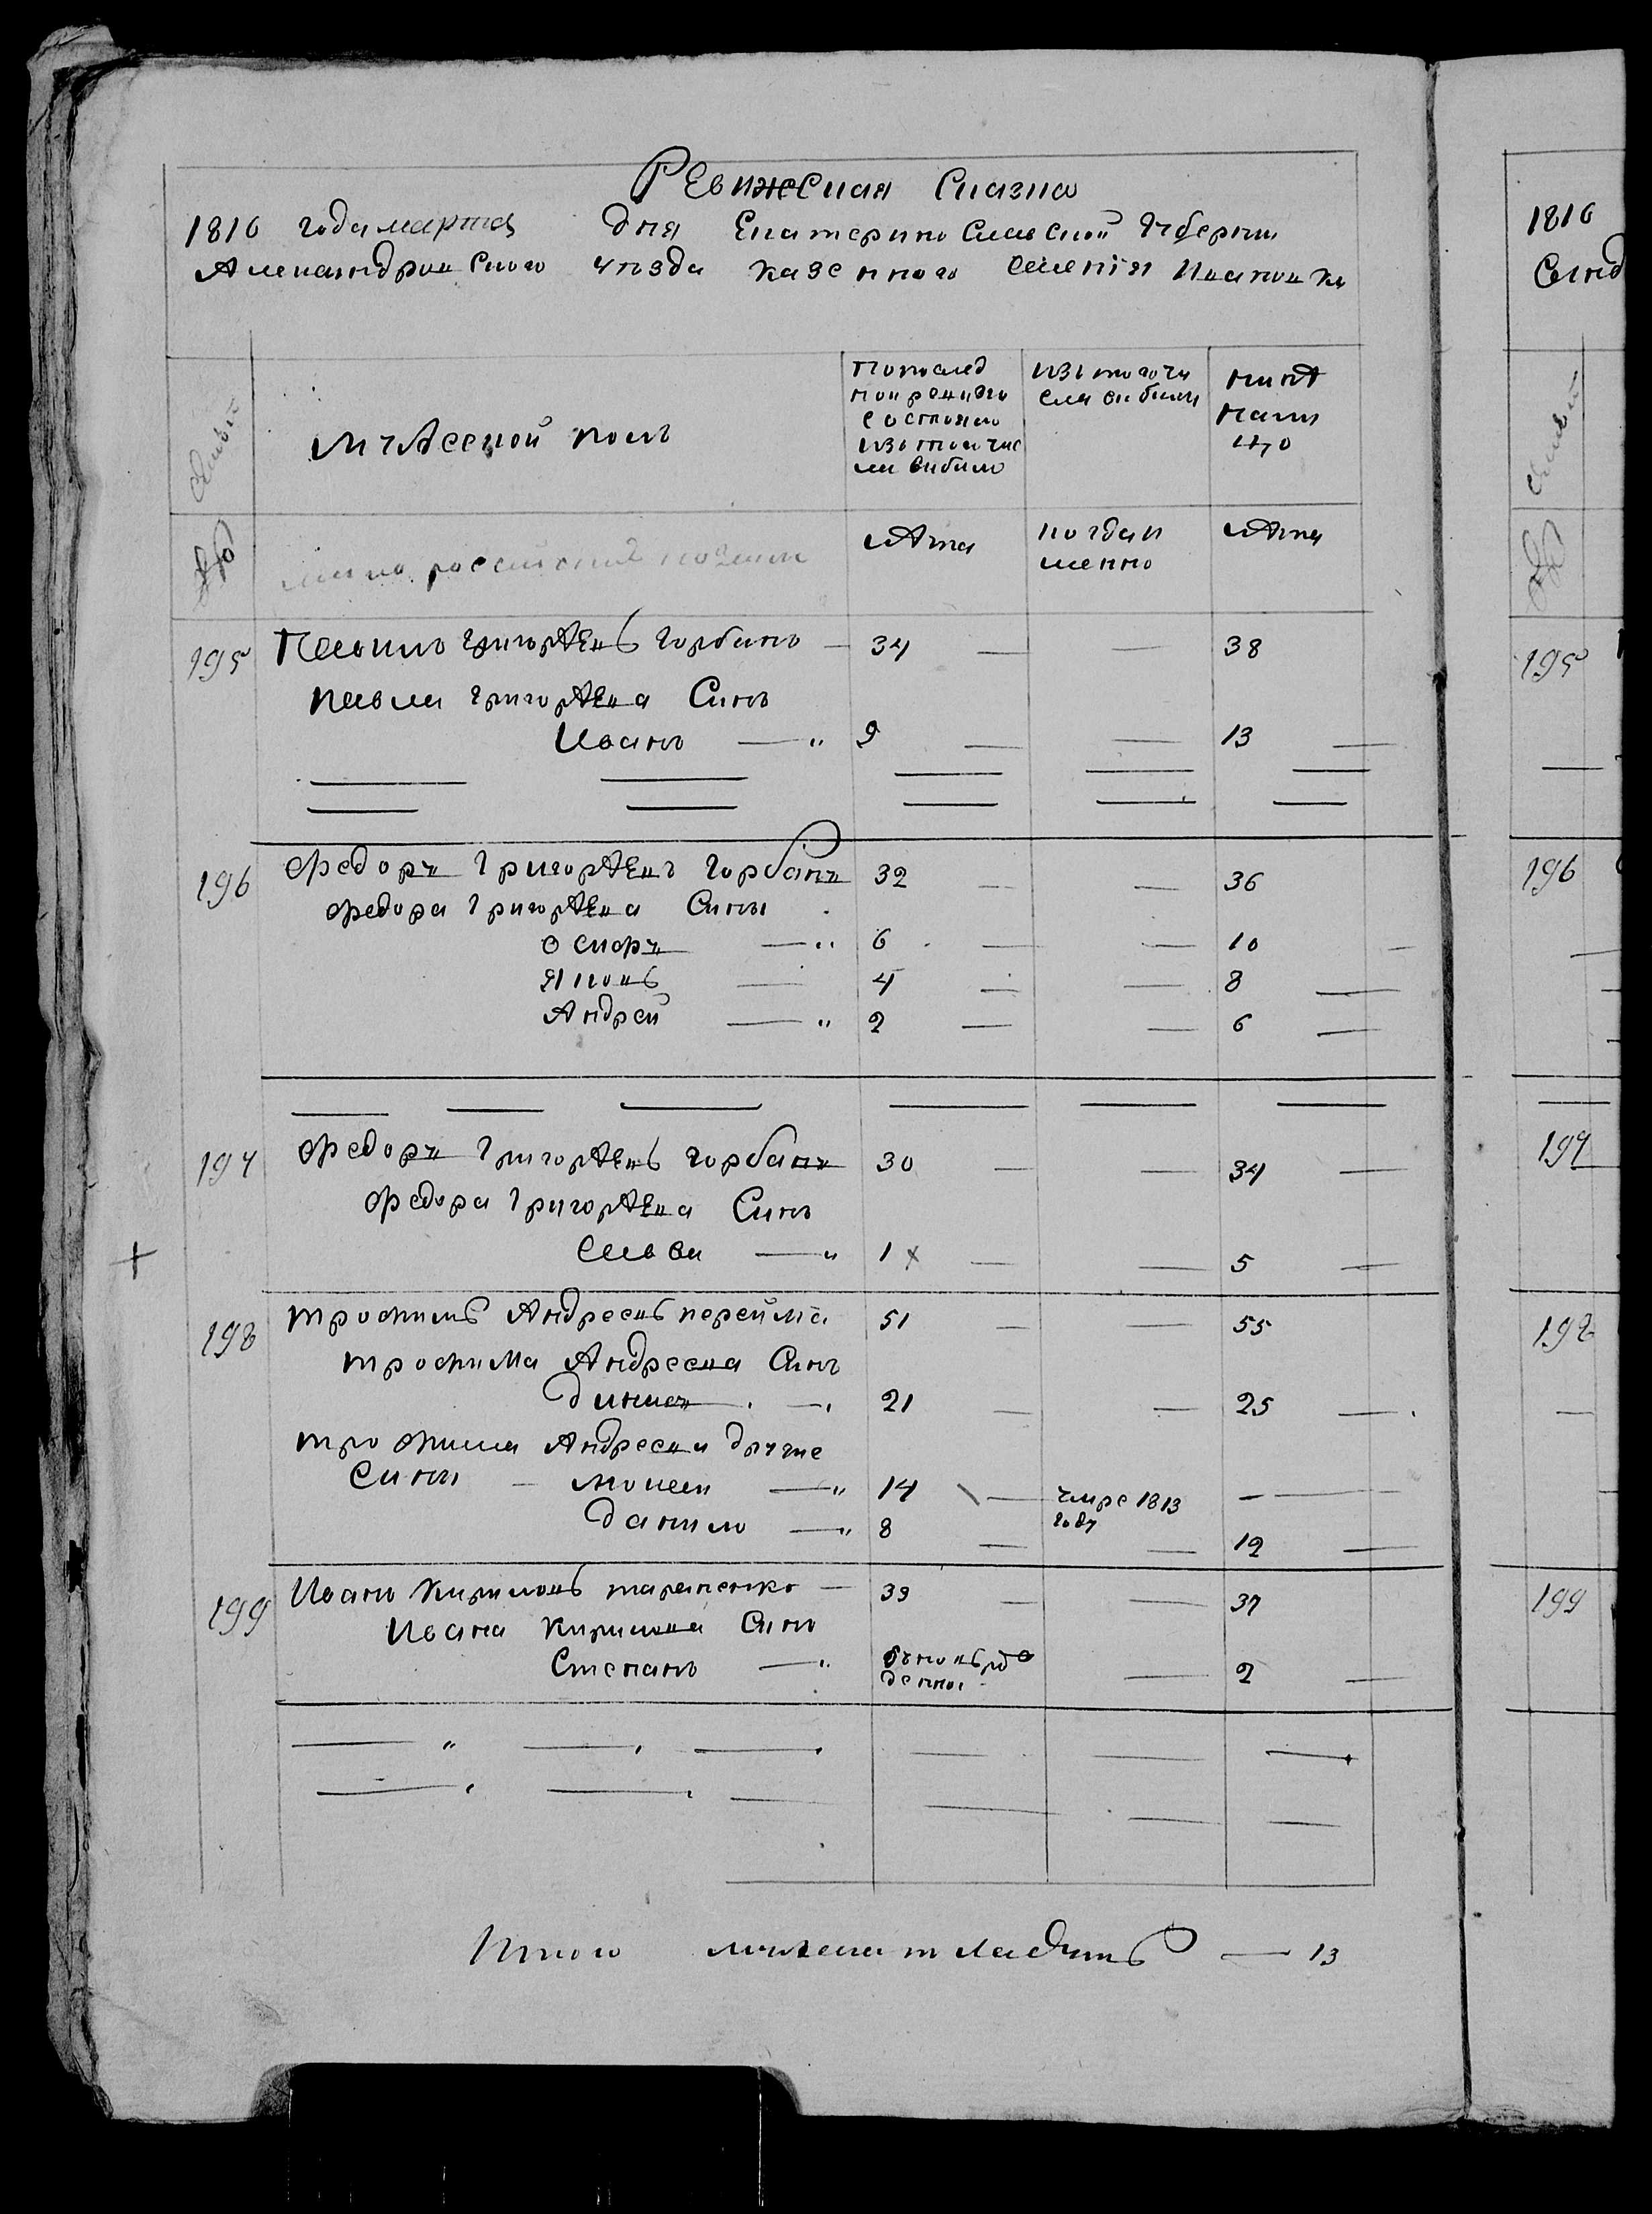 Ревижская Сказка
1816 года марта дня Екатеринославской Губернии
Александровского уезда казенного селения Ивановки
1816
Семья
мужеской полъ
По послед
ней ревизии
состояло
изъ того чис
ла выбыло
изъ того чи
сла выбыло
нине
нали
цо
№
малороссийской нации
лета
когда и
менно
лета
№
195 Павилъ Григорьевъ Горбань — 34 — — 38
195
Павла Григорьева Синъ
Иванъ — " 9 — — 13 —
196 Федоръ Григорьевъ Горбанъ 32 — — 36
196
Федора Григорьева Сины
Осиоръ — " 6 — — 10 —
Яковъ — 4 — — 8 —
Андрей — " 2 — — 6 —
197 Федоръ Григорьевъ Горбанъ 30 — — 34 —
197
Федора Григорьева Синъ
Савва — " 1 x — — 5 —
+
198 Трофимъ Андреевъ перейма 51 — — 55
198
трофима Андреева Синъ
21 — — 25 —
трофима Андреева другие
Сины — Мокей — " 14 — умре 1813 —
году
Данило — " 8 — — 12 —
199 Иванъ Кириловъ тараненко — 33 — — 37
199
Ивана Кирилова Синъ
Степанъ — " — 2 —
Итого мужеска — 13